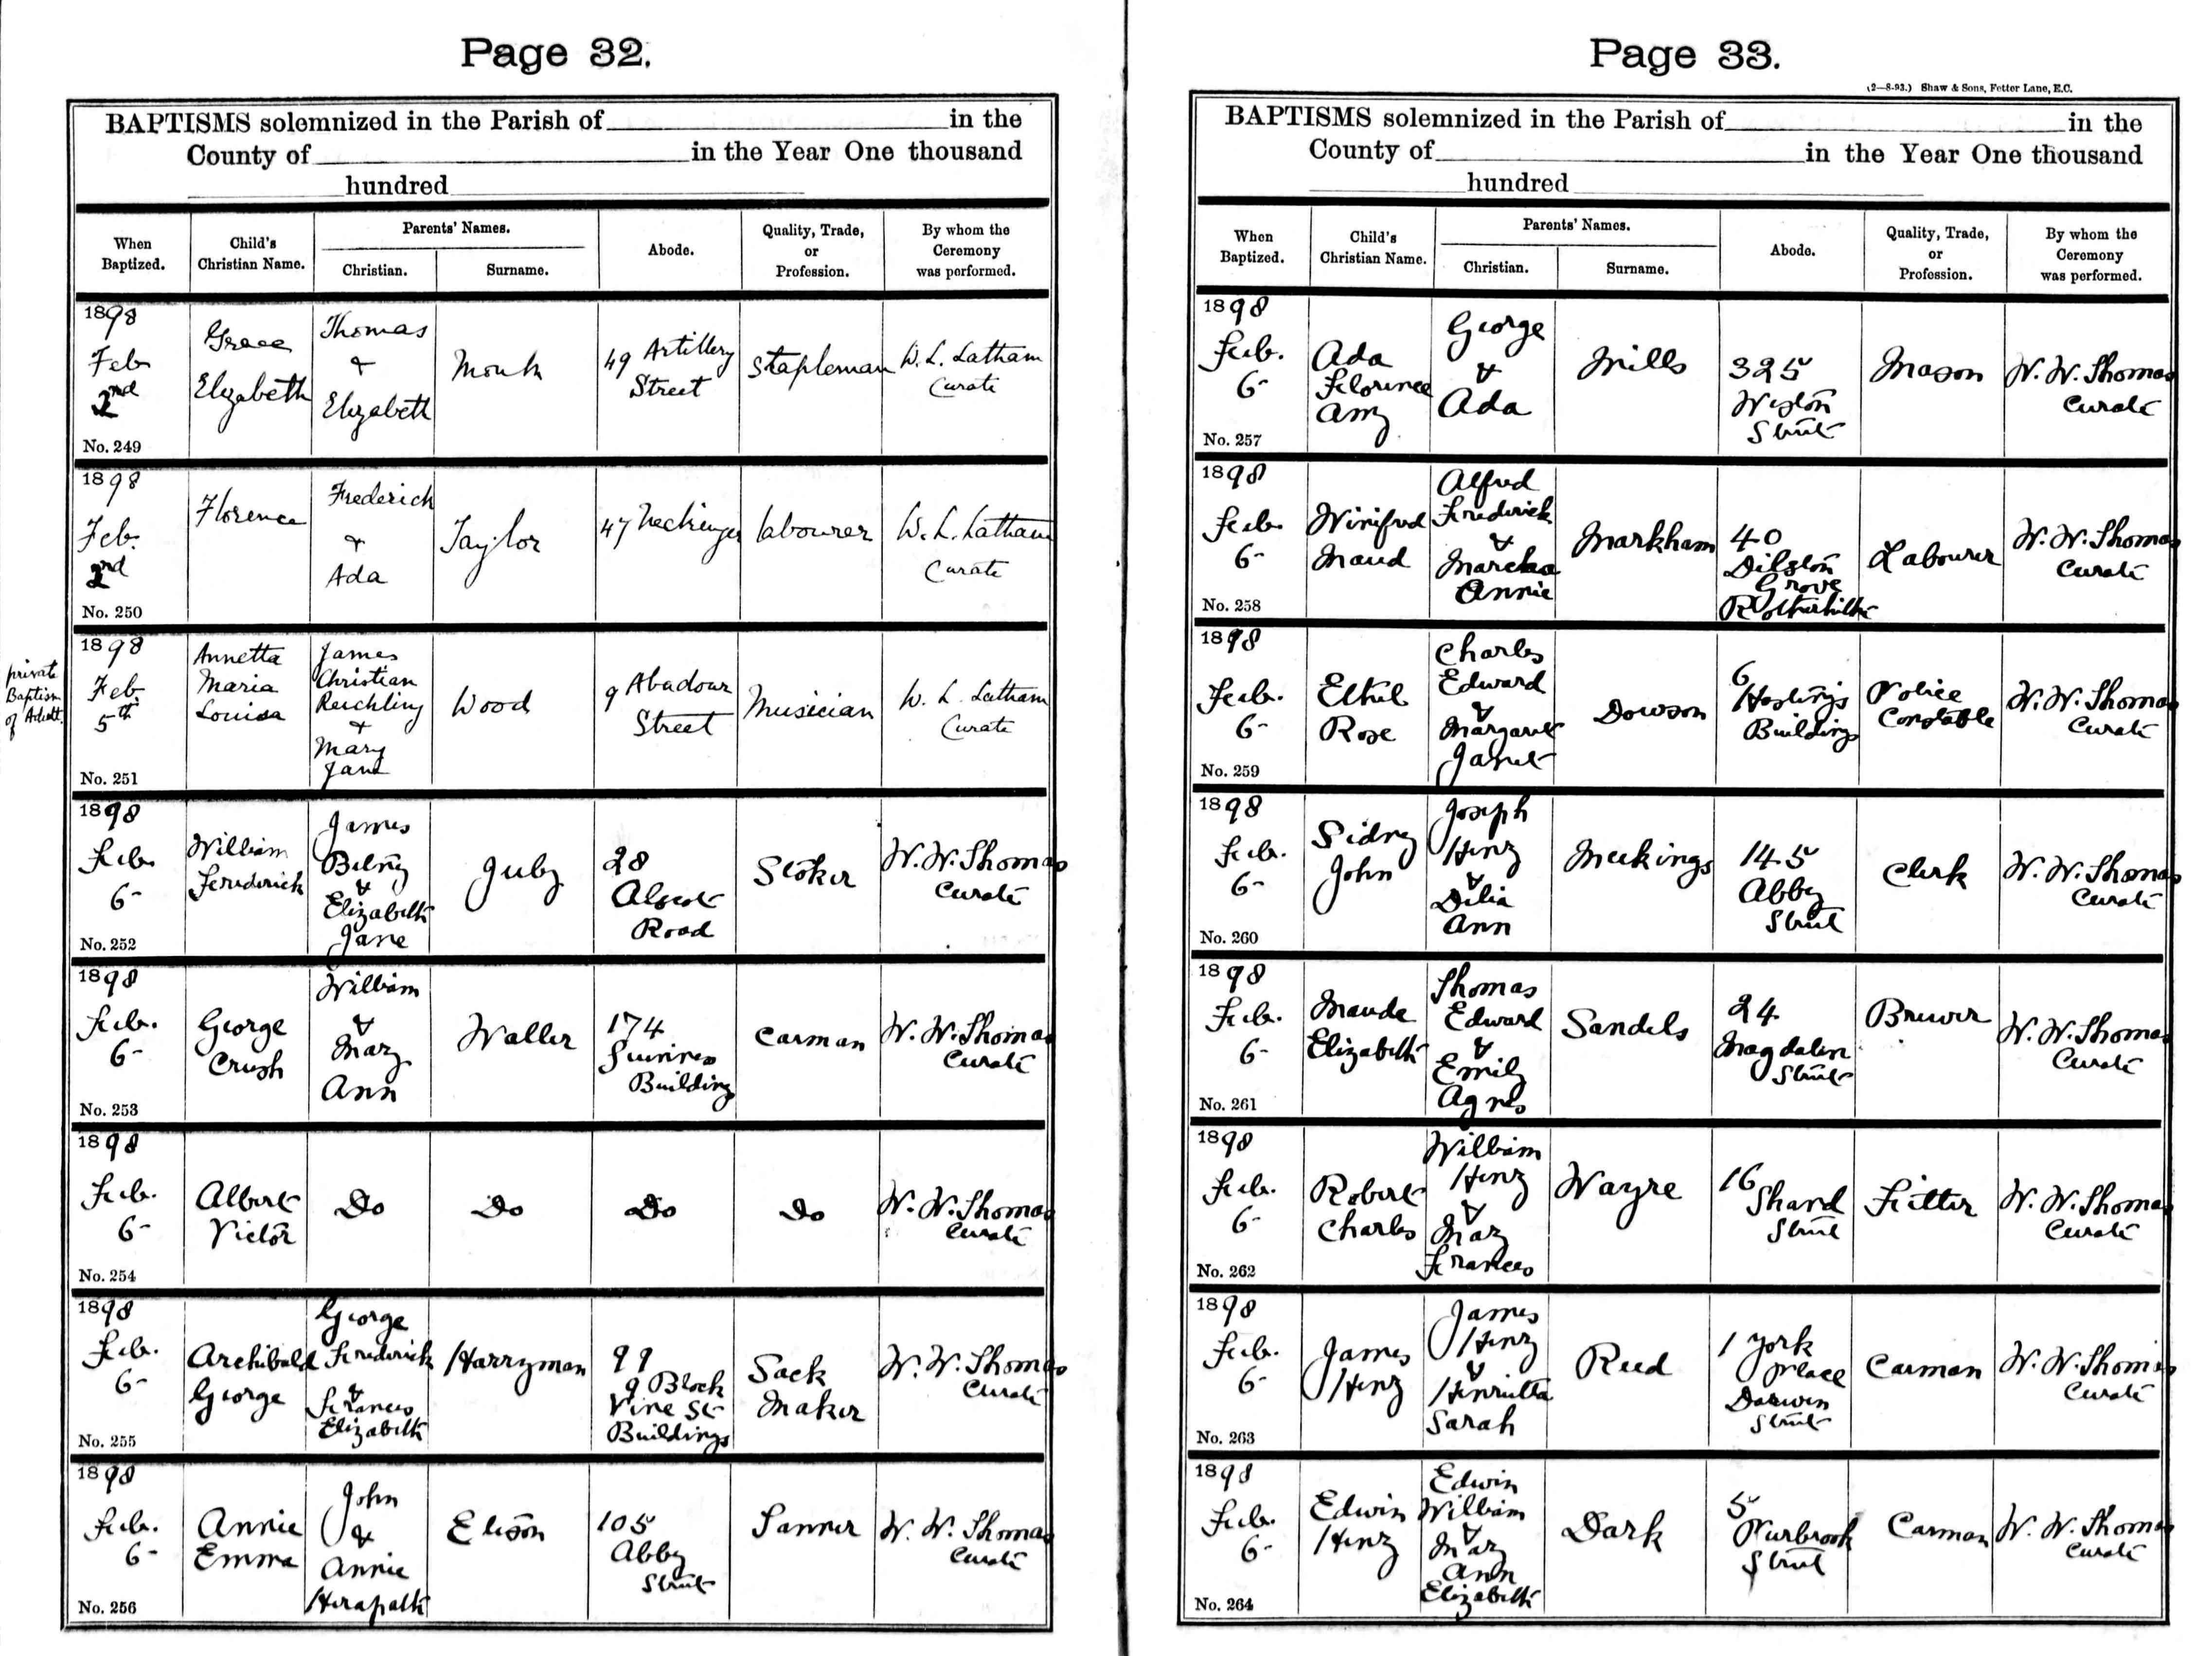 Page 32.
BAPTISMS solemnized in the Parish of in the
County of in the Year One thousand
hundred
When Baptized. Child's Christian Name. Parents' Names. Christian. Surname. Abode. Quality, Trade, or Profession. By whom the Ceremony was performed.
1898 Feb 2nd No. 249 Grace Elizabeth Thomas & Elizabeth Monk 49 Artillery Street Stapleman W. L. Latham Curate
1898 Feb. 2nd No. 250 Florence Frederick & Ada Taylor 47 Neckinger labourer W. L. Latham Curate
private Baptism of Adult.
1898 Feb 5th No. 251 Annetta Maria Louisa James Christian Reichling & Mary Jane Wood 9 Street Musician W. L. Latham Curate
1898 Feb. 6- No. 252 William Frederick James & Elizabeth Jane July 28 Alscot Road Stoker W. W. Thomas Curate
1898 Feb. 6- No. 253 George Crush William & Mary Ann Waller 174 Building Carman W. W. Thomas Curate
1898 Feb. 6- No. 254 Albert Victor Do Do Do Do W. W. Thomas Curate
1898 Feb. 6- No. 255 Archibald George George Frederick & Frances Elizabeth Harryman 99 9 Block Vine St Buildings Sack Maker W. W. Thomas Curate
1898 Feb. 6- No. 256 Annie Emma John & Annie Herapath Elison 105 Abby Street Tanner W. W. Thomas Curate
Page 33.
(2—8-93.) Shaw & Sons, Fetter Lane, E.C.
BAPTISMS solemnized in the Parish of in the
County of in the Year One thousand
hundred
When Baptized. Child's Christian Name. Parents' Names. Christian. Surname. Abode. Quality, Trade, or Profession. By whom the Ceremony was performed.
1898 Feb. 6- No. 257 Ada Florence Amy George & Ada Mills 325 Weston Street Mason W. W. Thomas Curate
1898 Feb. 6- No. 258 Winifred Maud Alfred Frederick & Annie Markham 40 Dilston Grove Rotherhithe Labourer W. W. Thomas Curate
1898 Feb. 6- No. 259 Ethel Rose Charles Edward & Margaret Janet Dowson 6 Hastings Buildings Police Constable W. W. Thomas Curate
1898 Feb. 6- No. 260 Sidney John Joseph Henry & Delia Ann Meekings 145 Abby Street Clerk W. W. Thomas Curate
1898 Feb. 6- No. 261 Maude Elizabeth Thomas Edward & Emily Agnes Sandels 24 Magdalen Street Brewer W. W. Thomas Curate
1898 Feb. 6- No. 262 Robert Charles William Henry & Mary Frances Wayre 16 Shard Street Fitter W. W. Thomas Curate
1898 Feb. 6- No. 263 James Henry James Henry & Henrietta Sarah Reed 1 York place Darwin Street Carman W. W. Thomas Curate
1898 Feb. 6- No. 264 Edwin Henry Edwin William & Mary Ann Elizabeth Dark 5 Purbrook Street Carman W. W. Thomas Curate